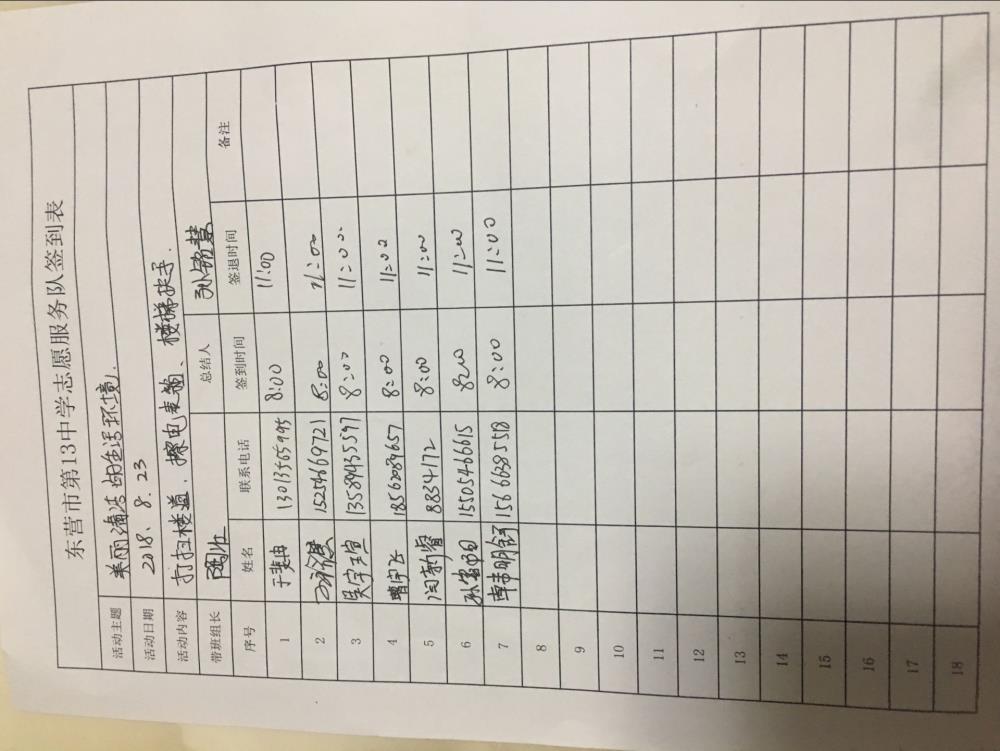 东营市第13中学志愿服务队签到表
活动主题 美丽清洁的生活环境.
活动日期 2018. 8. 23
活动内容 打扫楼道、擦电表箱、楼梯扶手.
带班组长 总结人
序号 姓名 联系电话 签到时间 签退时间 备注
1 于斐冉 13013565995 8:00 11:00
2 15254669721 8:00 11:00
3 吴宇宣 13589435597 8:00 11:00
4 18562089657 8:00 11:00
5 闫新睿 8834172 8:00 11:00
6 15505466615 8:00 11:00
7 15666385558 8:00 11:00
8
9
10
11
12
13
14
15
16
17
18